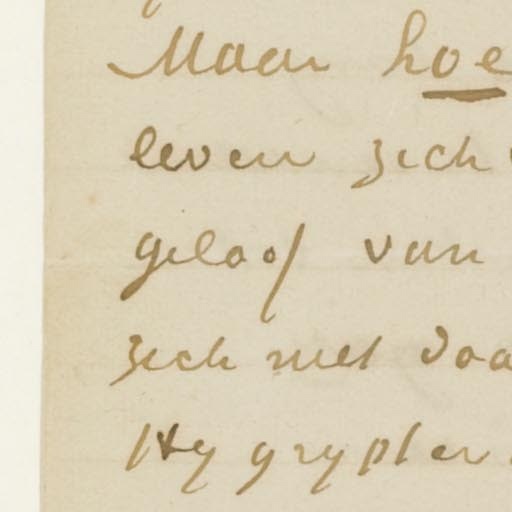 Maar hoe
leven zich
geloof van
zich niet
Hy grypt er